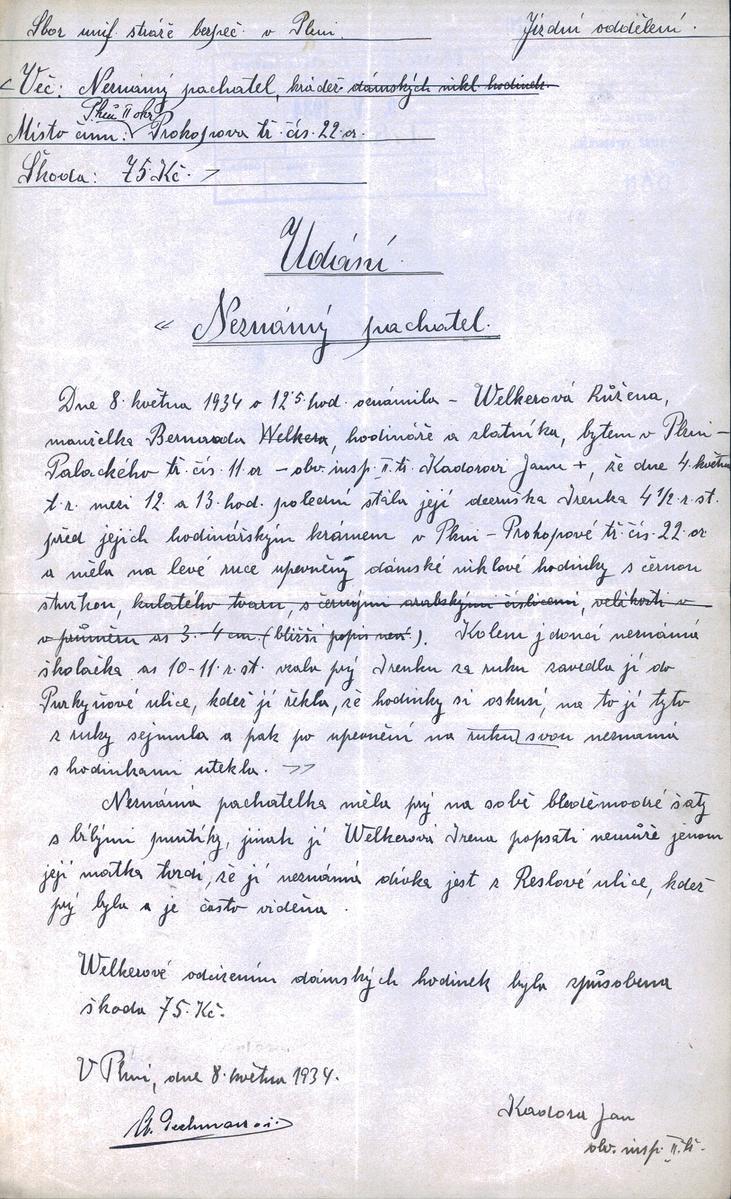 Sbor unif. stráže bezpeč. v Plzni. Jízdní oddělení.
Věc: Neznámý pachatel, krádež dámských nikl. hodinek
Plzeň II okr.
Místo činu: Prokopova tř. čís. 22 or.
Škoda: 75 Kč.
Udání.
Neznámý pachatel.
Dne 8. května 1934 o 12 5 hod. oznámila – Welkerová Růžena,
manželka Bernarda Welkera, hodináře a zlatníka, bytem v Plzni –
Palackého tř. čís. 11 or – obv. insp. II. tř. Kadorovi Janu +, že dne 4. května
t. r. mezi 12. a 13. hod. polední stála její dceruška Irenka 4 1/2 r. st.
před jejich hodinářským krámem v Plzni – Prokopově tř. čís. 22 or
a měla na levé ruce upevněny dámské niklové hodinky s černou
stužkou, kulatého tvaru, s černými arabskými číslicemi, velikosti v
v průměru as 3–4 cm. (bližší popis není). Kolem jdoucí neznámá
školačka as 10–11. r. st. vzala prý Irenku za ruku zavedla jí do
Purkyňové ulice, kdež jí řekla, že hodinky si oskusí, na to jí tyto
z ruky sejmula a pak po upevnění na ruku svou neznámá
s hodinkami utekla.
Neznámá pachatelka měla prý na sobě bleděmodré šaty
s bílými puntíky, jinak jí Welkerová Irena popsati nemůže jenom
její matka tvrdí, že jí neznámá dívka jest z Reslové ulice, kdež
prý byla a je často viděna.
Welkerové odcizením dámských hodinek byla způsobena
škoda 75 Kč.
V Plzni, dne 8. května 1934.
Kadora Jan
obv. insp. II. tř.